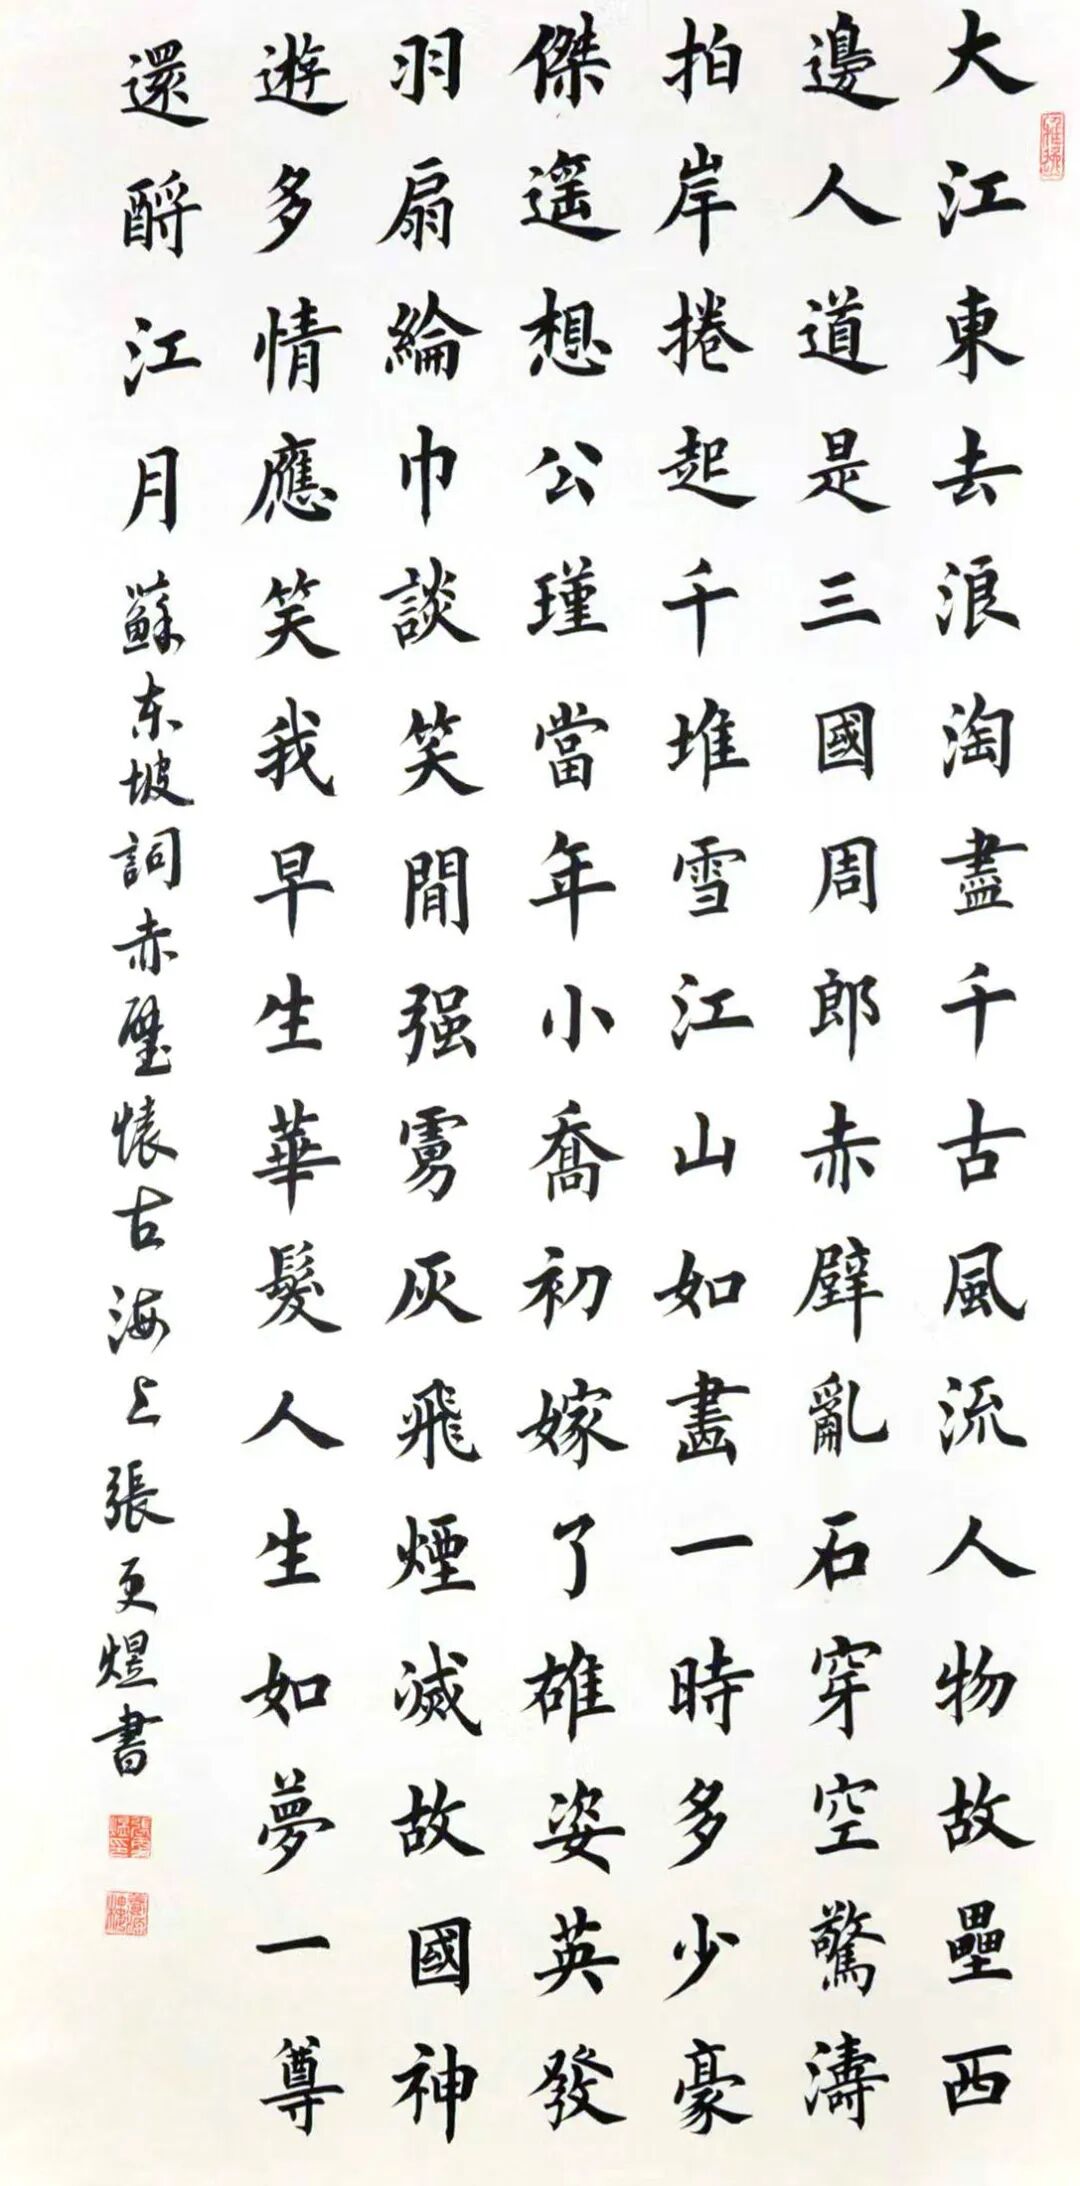 大江東去浪淘盡千古風流人物故壘西
邊人道是三國周郎赤壁亂石穿空驚濤
拍岸捲起千堆雪江山如畫一時多少豪
傑遥想公瑾當年小喬初嫁了雄姿英發
羽扇綸巾談笑間强虜灰飛煙滅故國神
遊多情應笑我早生華髮人生如夢一尊
還酹江月蘇东坡詞赤壁懷古海上張更煜書